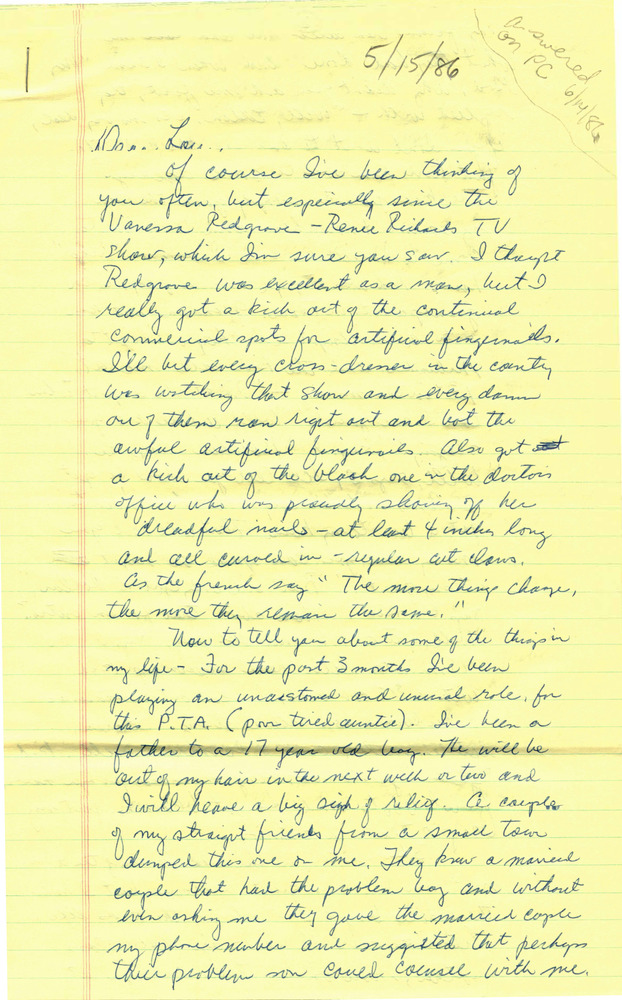 5/15/86
answered
on PC
6/14/86
Dear Lou..
Of course I've been thinking of
you often, but especially since the
Vanessa Redgrave - Renee Richards TV
show, which I'm sure you saw. I thought
Redgrave was excellent as a man, but I
really got a kick out of the continual
commercial spots for artificial fingernails.
I'll bet every cross-dresser in the country
was watching that show and every damn
one of them ran right out and bot the
awful artificial fingernails. Also got
a kick out of the black one in the doctors
office who was proudly showing off her
dreadful nails - at least 4 inches long
and all curved in - regular cut claws.
As the french say "The more things change,
the more they remain the same."
Now to tell you about some of the things in
my life - For the past 3 months I've been
playing an unaccustomed and unusual role, for
this P.T.A. (poor tired auntie). I've been a
father to a 17 year old boy. He will be
out of my hair in the next week or two and
I will heave a big sigh of relief. A couple
of my straight friends from a small town
dumped this one on me. They knew a married
couple that had the problem boy and without
even asking me they gave the married couple
my phone number and suggested that perhaps
their problem son could counsel with me.